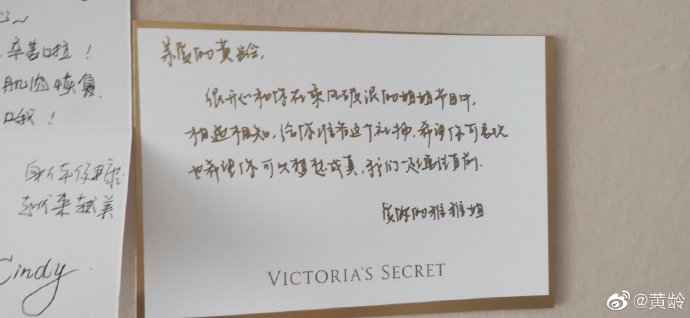 辛苦啦!
肌肉恢复
哦!
身体健康
越来越美
Cindy
亲爱的黄龄,
很开心和你在乘风破浪的姐姐节目中,
相遇相知,给你准备这个礼物,希望你可喜欢
也希望你可以梦想成真,我们一起勇往直前.
爱你的雅雅姐
VICTORIA'S SECRET
@黄龄